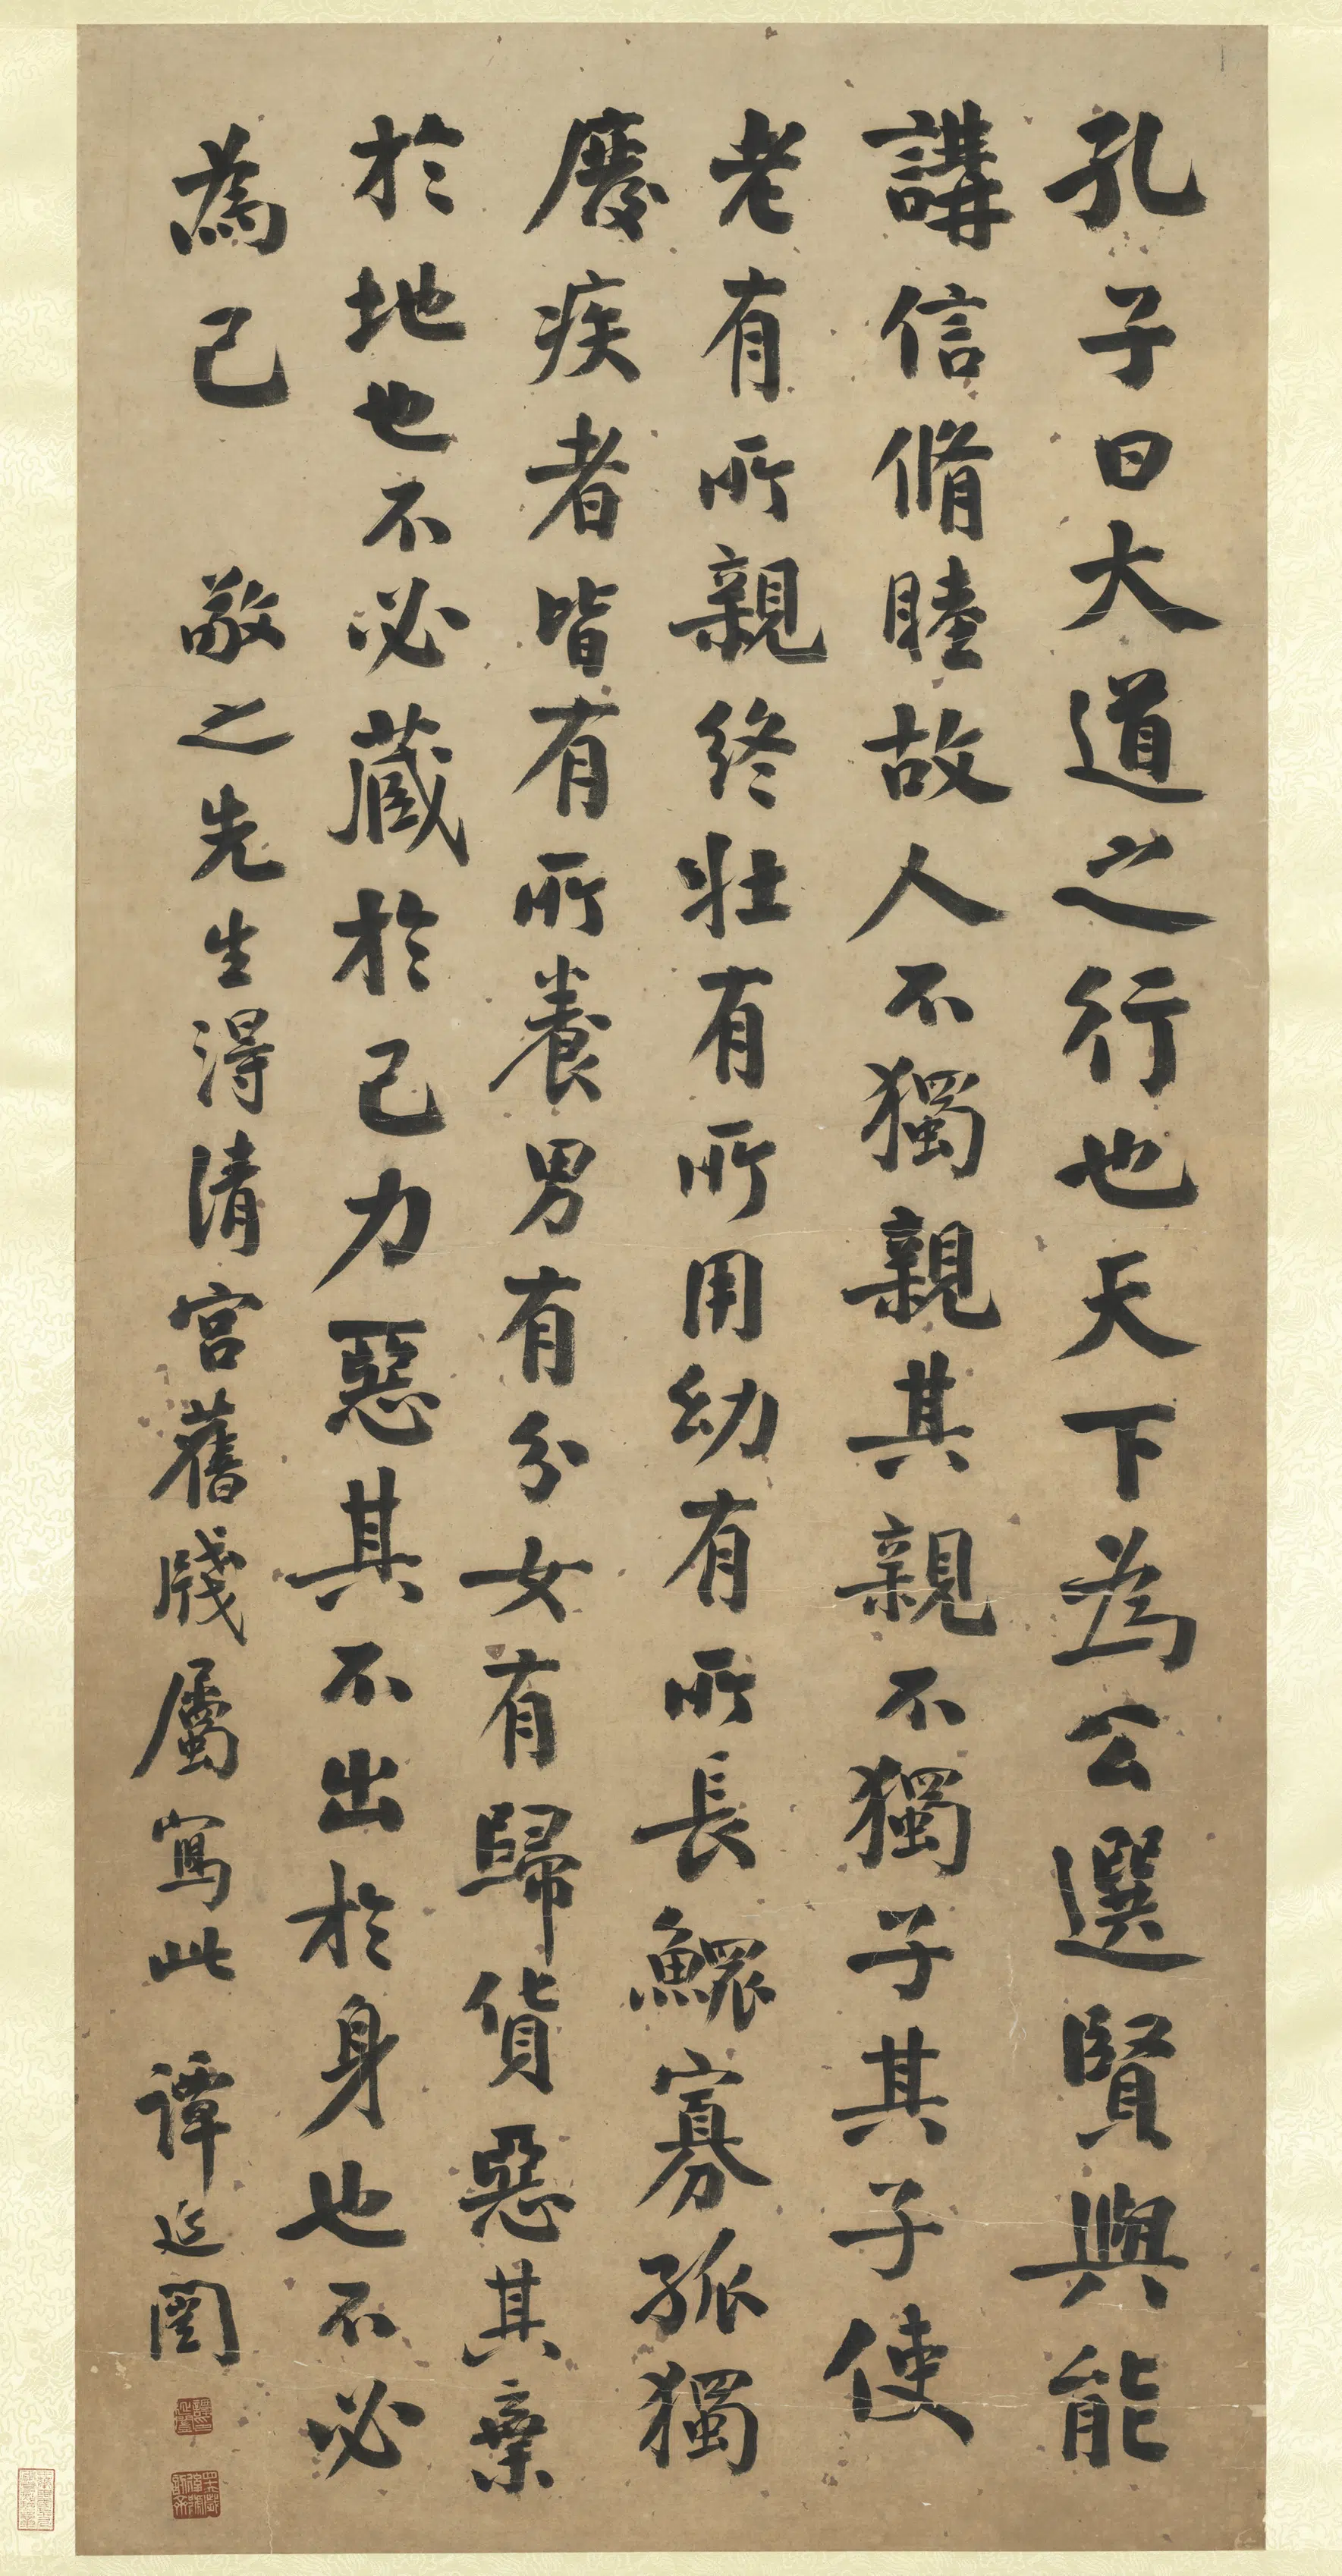 孔子曰大道之行也天下為公選賢與能
講信脩睦故人不獨親其親不獨子其子使
老有所親終壯有所用幼有所長鰥寡孤獨
廢疾者皆有所養男有分女有歸貨惡其棄
於地也不必藏於己力惡其不出於身也不必
為己
敬之先生得清宮舊牋屬寫此 譚延闓